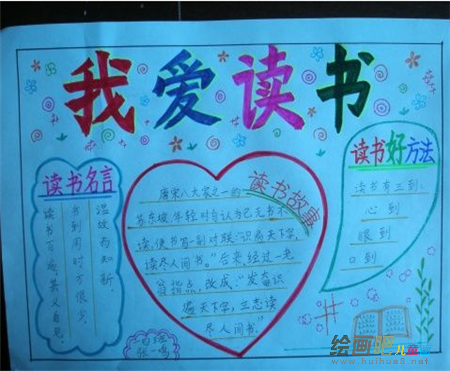 我爱读书
读书名言
温故而知新。
书到用时方恨少
读书百遍,其义自见。
读书故事
唐宋八大家之一的
苏东坡,年轻时自认己无书不
读,便书写一副对联:“识遍天下字,
读尽人间书。”后来经过一老
翁指点,改成:“发奋识
遍天下字,立志读
尽人间书。”
读书好方法
读书有三到:
心到
眼到
口到
绘画吧
www.huihua8.net